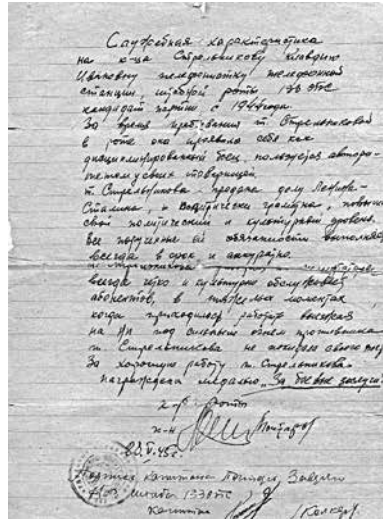 Служебная характеристика
на к-ца Стрельникову Клавдию
Ивановну телефонистку телефонной
станции, штабной роты 133 ОПС
кандидат партии с 1944 года
За время пребывания т. Стрельниковой
в роте она проявила себя как
дисциплинированный боец, пользуется авторе-
тетом у своих товарищей.
т. Стрельникова предана делу Ленина-
Сталина, и политически грамотна, повышает
свой политический и культурный уровень.
Все порученные ей обязанности выполняет
всегда в срок, и аккуратно.
т. Стрельникова
всегда четко и культурно обслуживает
абонентов, в тяжелые моменты
когда приходилось работать
на под сильным огнем противника
т. Стрельникова не покидала своего
За хорошую работу т. Стрельникова
награждена медалью „За боевые заслуги"
к-р роты
к-н
45г.
Подпись капитана заверяю
штаба 133 ОПС
Капитан